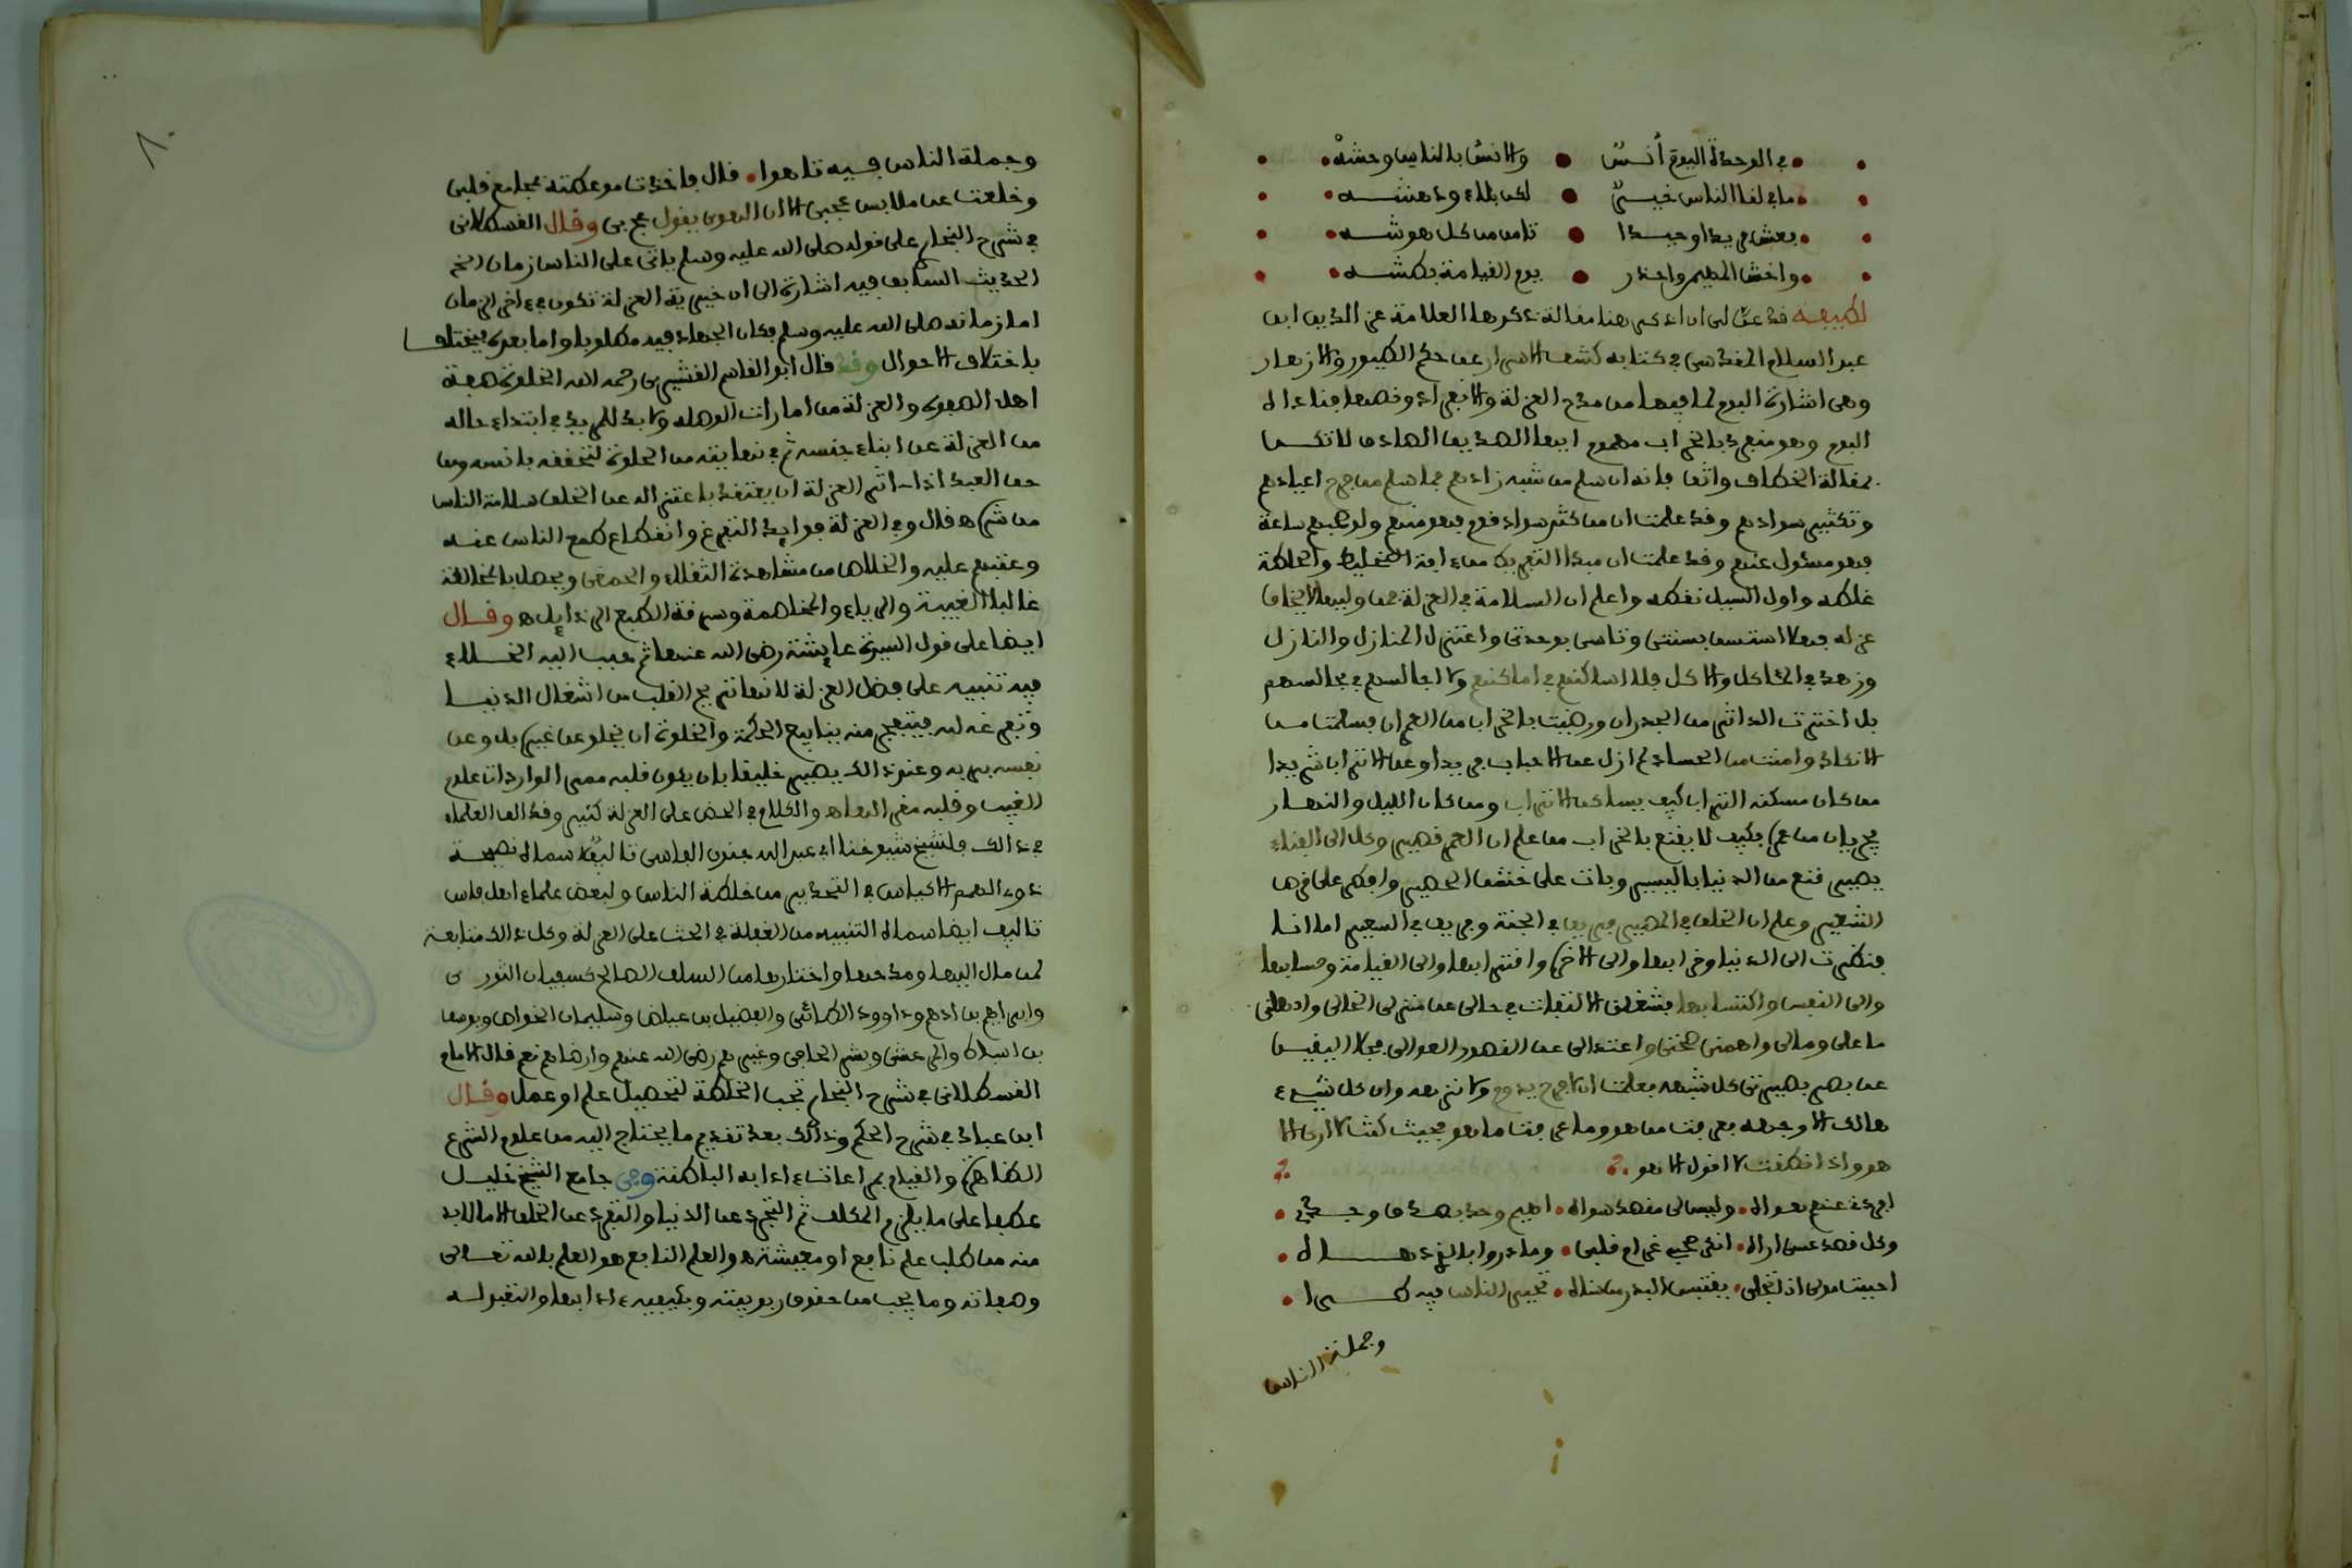 في الوحدة اليوم أنس • والانس بالناس وحشه
ما في لقا الناس خير • لكن بلاء ودهشه
بعش فريدا وحيدا • تامن من كل هوشه
واخش المهيمن واحذر • يوم القيامة بطشه
لطيفة فد عن لى ان اذكر هنا مقالة ذكرها العلامة عز الدين ابن
عبد السلام المقدسي في كتابه كشف الاسرار عن حكم الطيور والازهار
وهي اشارة البوم لما فيها من مدح العزلة والانفراد ونصها فناداه
البوم وهو منفرد بالخراب مهموم ايها الصديق الصادق لا تكن
بمقالة الخطاف واثقا فانه ان سلم من شبه زادهم فما سلم من فرح اعيادهم
وتكثير سوادهم وفد علمت ان من كثر سواد فوم فهو منهم ولو صحبهم ساعة
فهو مسئول عنهم وفد علمت ان مبدا التفريط من افة التخليط والخلطة
غلطة واول السيل نقطة واعلم ان السلامة في العزلة فمن وليها لا يخاف
عزله فهلا استسن بسنتى وتاسى بوحدتى واعتزل المنازل والنازل
وزهد في الماكل والاكل فلا اساكنهم في اماكنهم ولا اجالسهم في مجالسهم
بل اخترت الداثر من الجدران ورضيت بالخراب من العمران فسلمت من
الانكاد وامنت من الحساد لم ازل عن الاحباب فريدا وعن الاتراب شريدا
من كان مسكنه التراب كيف يساكن الاتراب ومن كان الليل والنهار
يجريان من عمره فكيف لا يقنع بالخراب من علم ان العمر فصير وكل الى الفناء
يصير فنع من الدنيا باليسير وبات على خشن الحصير وافطر على فرص
الشعير وعلم ان الخلق في المصير فريق في الجنة وفريق في السعير اما انا
فنظرت الى الدنيا وخرابها والى الاخرة واقترابها والى القيامة وحسابها
والى النفس واكتسابها فشغلنى التفات في حالى عن منزلى الخالى واذهلنى
ما على ومالى واهمنى محنتى واعتدالى عن القصور العوالى فجلا اليقين
عن بصر بصيرتى كل شبهه فعلمت ان لا فرح يدوم ولا نزهه وان كل شيء
هالك الا وجهه فعرفت من هو وما عرفت ما هو فحيث كنت لا ارى الا
هو واذا نطفت لا افول الا هو
افردنى عنهم هواه • وليس لى مقصد سواه • اهيم وحدى بصدق وجدى •
وكل فصدى عسى اراه • انكر صحبى غرام فلبى • وما دروا بالذى دهاه •
احببت مولى اذ تجلى • يقتبس البدر من سناه • تحير الناس فيه طرا •
وجملة الناس
وجملة الناس فيه تاهوا • فال فاخذت موعظته مجامع فلبى
وخلعت عن ملابس عجبى الا ان الهوى يقول عج بى وقال القسطلانى
في شرح البخارى على قوله صلى الله عليه وسلم ياتى على الناس زمان الخ
الحديث السابق فيه اشارة الى ان خيرية العزلة تكون في اخر الزمان
اما زمانه صلى الله عليه وسلم فكان الجهاد فيه مطلوبا واما بعده فيختلف
باختلاف الاحوال وفد فال ابو القاسم القشيرى رحمه الله الخلوة صفة
اهل الصفوة والعزلة من امارات الوصلة ولا بد للمريد في ابتداء حاله
من العزلة عن ابناء جنسه ثم في نهايته من الخلوة لتحققه بانسه ومن
حق العبد اذا اثر العزلة ان يعتقد باعتزاله عن الخلق سلامة الناس
من شره فال وفي العزلة فوايد التفرغ وانقطاع طمع الناس عنه
وعتبهم عليه والخلاص من مشاهدة الثقلاء والحمقى ويحصل بالمخالطة
غالبا الغيبة والرياء والمخاصمة وسرفة الطبع الرذايل ه وقال
ايضا على قول السيدة عايشة رضى الله عنها ثم حبب اليه الخلاء
فيه تنبيه على فضل العزلة لانها تريح القلب من اشغال الدنيا
وتفرغه له فيتفجر منه ينابيع الحكمة والخلوة ان يخلو عن غيره بل وعن
نفسه بربه وعند ذالك يصير خليقا بان يكون فلبه ممر الواردات علوم
الغيب وفلبه مقر لها ه والكلام في الحض على العزلة كثير وفد الف العلماء
في ذالك فلشيخ شيوخنا ابى عبد الله جنون الفاسى تاليف سماه نصيحة
ذوى الهمم الاكياس في التحذير من خلطة الناس ولبعض علماء اهل فاس
تاليف ايضا سماه التنبيه من الغفلة في الحث على العزلة وكل ذالك متابعة
لمن مال اليها ومدحها واختارها من السلف الصالح كسفيان الثورى
وابراهيم بن ادهم وداوود الطائى والفضيل بن عياض وسليمان الخواص ويوسف
بن اسباط والمرعشى وبشر الحافى وغيرهم رضى الله عنهم وارضاهم نعم فال الامام
القسطلانى في شرح البخارى تجب الخلطة لتحصيل علم او عمل وقال
ابن عباد في شرح الحكم وذالك بعد تقديم ما يحتاج اليه من علوم الشرع
الظاهرة والقيام بمراعات ءادابه الباطنة وفي جامع الشيخ خليل
عطفا على ما يلزم المكلف ثم التجرد عن الدنيا والتفرد عن الخلق الا ما لا بد
منه من طلب علم نافع او معيشة ه والعلم النافع هو العلم بالله تعالى
وصفاته وما يجب من حقوق ربوبيته وكيفية ءادابها والتعبد له
٨٠